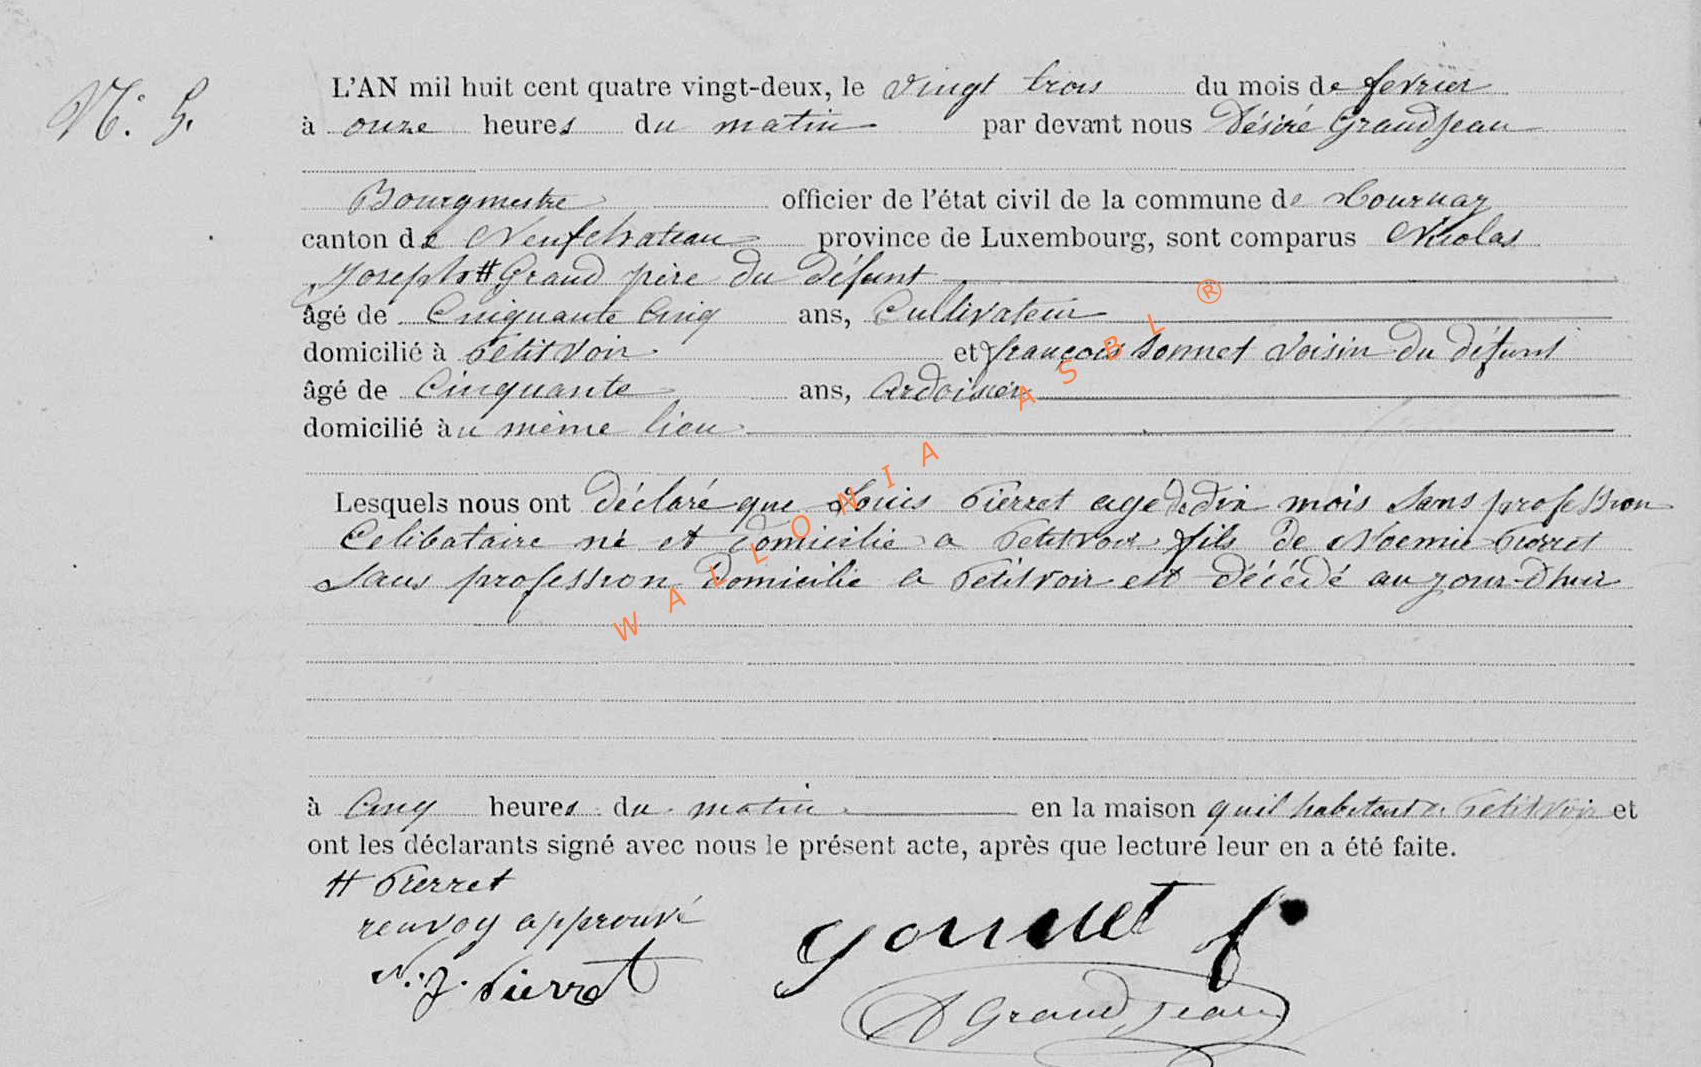 N: 5.
L'AN mil huit cent quatre vingt-deux, le vingt trois du mois de fevrier
à onze heures du matin par devant nous Désiré Grandjean
Bourgmestre officier de l'état civil de la commune de Tournay
canton de Neufchateau province de Luxembourg, sont comparus Nicolas
Joseph # Grand père du défunt
âgé de Cinquante Cinq ans, Cultivateur
domicilié à Petitvoir et françois Sonnet Voisin du défunt
âgé de Cinquante ans, Ardoisier
domicilié au même lieu
Lesquels nous ont déclaré que Louis Pierret agé de dix mois Sans profession
Celibataire né et domicilié a Petitvoir fils de Noemie Pierret
Sans profession domicilié a Petitvoir est décédé au jour-d'hui
à Cinq heures du matin en la maison quil habitait a Petitvoir et
ont les déclarants signé avec nous le présent acte, après que lecture leur en a été faite.
# Pierret
renvoy approuvé
N. J. Pierret
Sonnet f
D Grandjean
WALLONIA ASBL ®